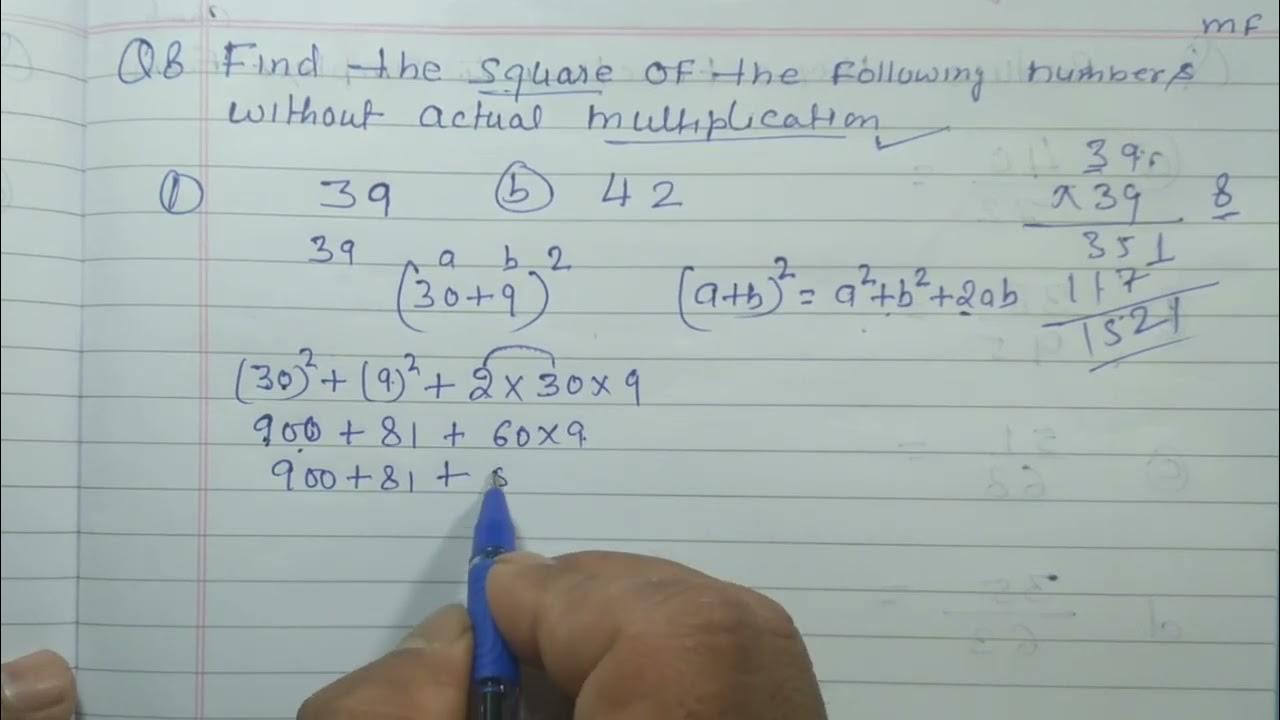 mF
Q8 Find the square of the following numbers
without actual multiplication
① 39 ⓑ 42
39
x39 8
351
117
1521
39 a b
(30+9)² (a+b)² = a²+b²+2ab
(30)² + (9)² + 2×30×9
900 + 81 + 60×9
900+81 +